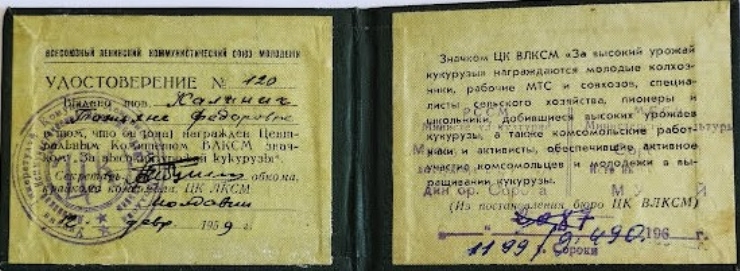 ВСЕСОЮЗНЫЙ ЛЕНИНСКИЙ КОММУНИСТИЧЕСКИЙ СОЮЗ МОЛОДЕЖИ
УДОСТОВЕРЕНИЕ № 120
Выдано тов. Калинич
Татьяне Федоровне
в том, что он (она) награжден Цент-
ральным Комитетом ВЛКСМ знач-
ком „За высокий урожай кукурузы“.
Секретарь обкома,
крайкома комсомола, ЦК ЛКСМ
Молдавии
12 февр 1959 г.
Значком ЦК ВЛКСМ «За высокий урожай
кукурузы» награждаются молодые колхоз-
ники, рабочие МТС и совхозов, специа-
листы сельского хозяйства, пионеры и
школьники, добившиеся высоких урожаев
кукурузы, а также комсомольские работ-
ники и активисты, обеспечившие активное
участие комсомольцев и молодежи в вы-
ращивании кукурузы.
МУЗЕЙ
(Из постановления бюро ЦК ВЛКСМ)
196 г.
г. Сороки